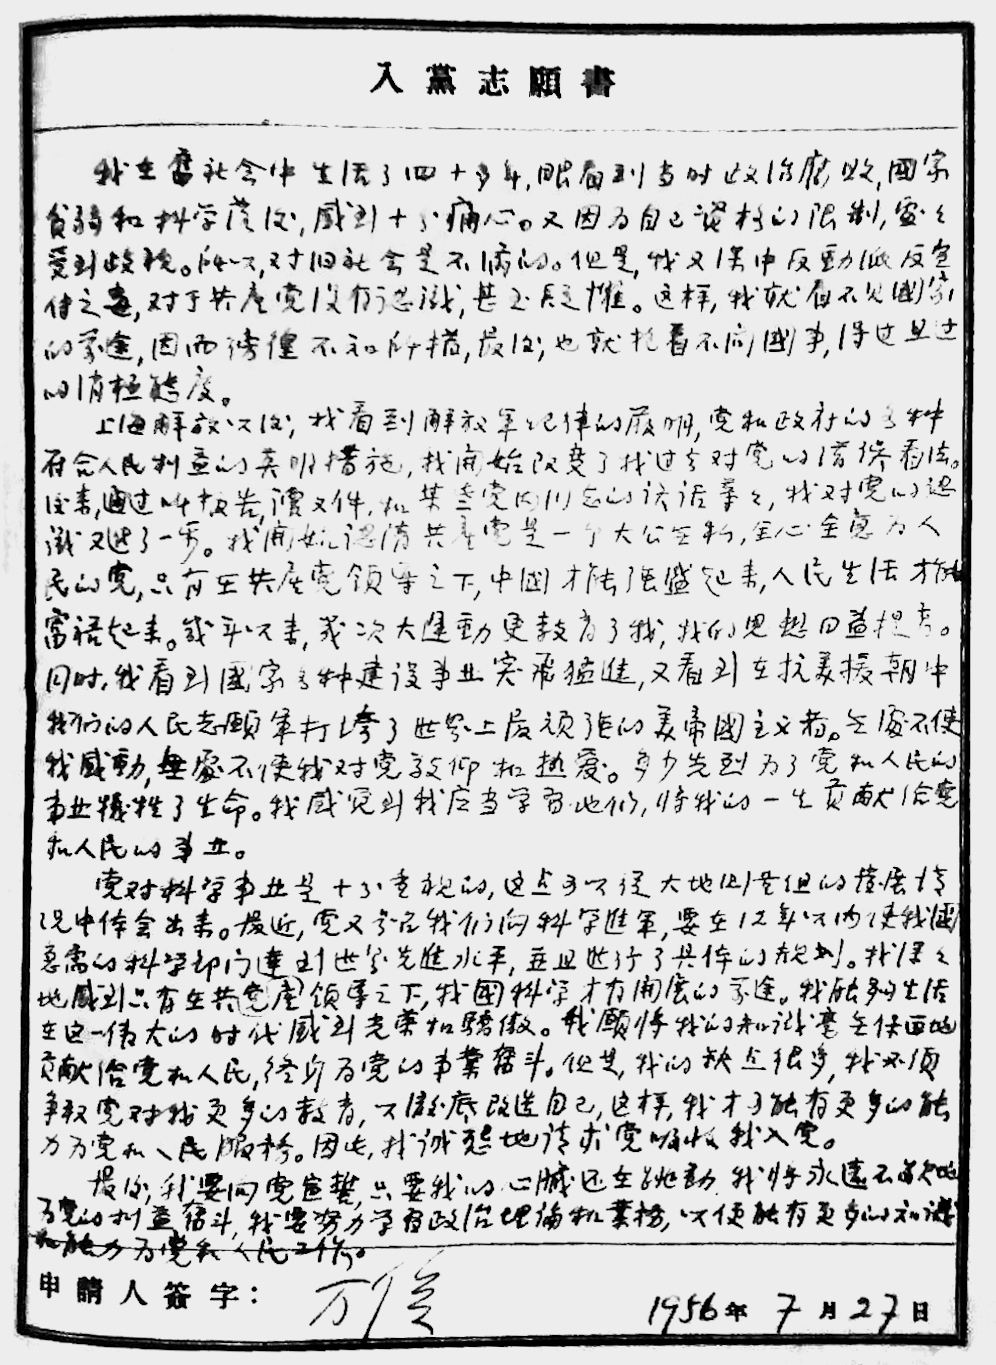 入黨志願書
我在舊社会中生活了四十多年,眼看到当时政治腐败,國家
貧弱和科学落后,感到十分痛心。又因为自己資格的限制,處之
受到歧視。所以,对旧社会是不满的。但是,我又深中反動派反宣
传之毒,对于共產党没有认識,甚至疑惟。这样,我就看不見國家
的前途,因而徬徨不知所措,最后,也就抱着不问國事,得过且过
的消極態度。
上海解放以后,我看到解放军纪律的严明,党和政府的各种
符合人民利益的英明措施,我開始改变了我过去对党的看法。
后来,通过听报告,讀文件,和某些党内同志的谈话等等,我对党的認
識又進了一步。我開始認清共產党是一个大公無私,全心全意为人
民的党,只有在共產党领導之下,中國才能强盛起来,人民生活才能
富裕起来。幾年以来,幾次大運動更教育了我,我的思想日益提高。
同时,我看到國家各种建设事业突飛猛進,又看到在抗美援朝中
我们的人民志願军打垮了世界上最頑强的美帝國主义者。無處不使
我感動,無處不使我对党敬仰和热愛。多少先烈为了党和人民的
事业犧牲了生命。我感觉到我应当学習他们,将我的一生贡献给党
和人民的事业。
党对科学事业是十分重視的,这点可以從大地的發展情
况中体会出来。最近,党又号召我们向科学進军,要在12年以内使我國
急需的科学部门達到世界先進水平,並且进行了具体的規划。我深深
地感到只有在共党產领導之下,我國科学才有開展的前途。我能夠生活
在这一偉大的时代感到光荣和驕傲。我願将我的知識毫無保留地
贡献给党和人民,终身为党的事業奮斗。但是,我的缺点很多,我必须
争取党对我更多的教育,以澈底改造自己,这样,我才可能有更多的能
力为党和人民服務。因此,我诚懇地请求党吸收我入党。
最后,我要向党宣誓,只要我的心臟还在跳動,我将永遠不的
为党的利益奮斗,我要努力学習政治理論和業務,以便能有更多的知識
和能力为党和人民工作。
申請人簽字：
1956年7月27日